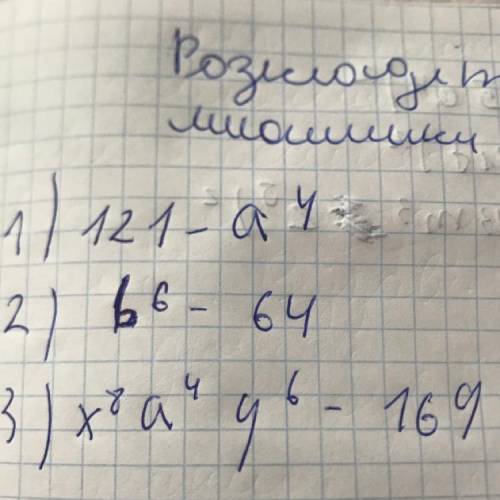 Розкладіт
множники
1) 121 - a⁴
2) b⁶ - 64
3) x⁸ a⁴ y⁶ - 169